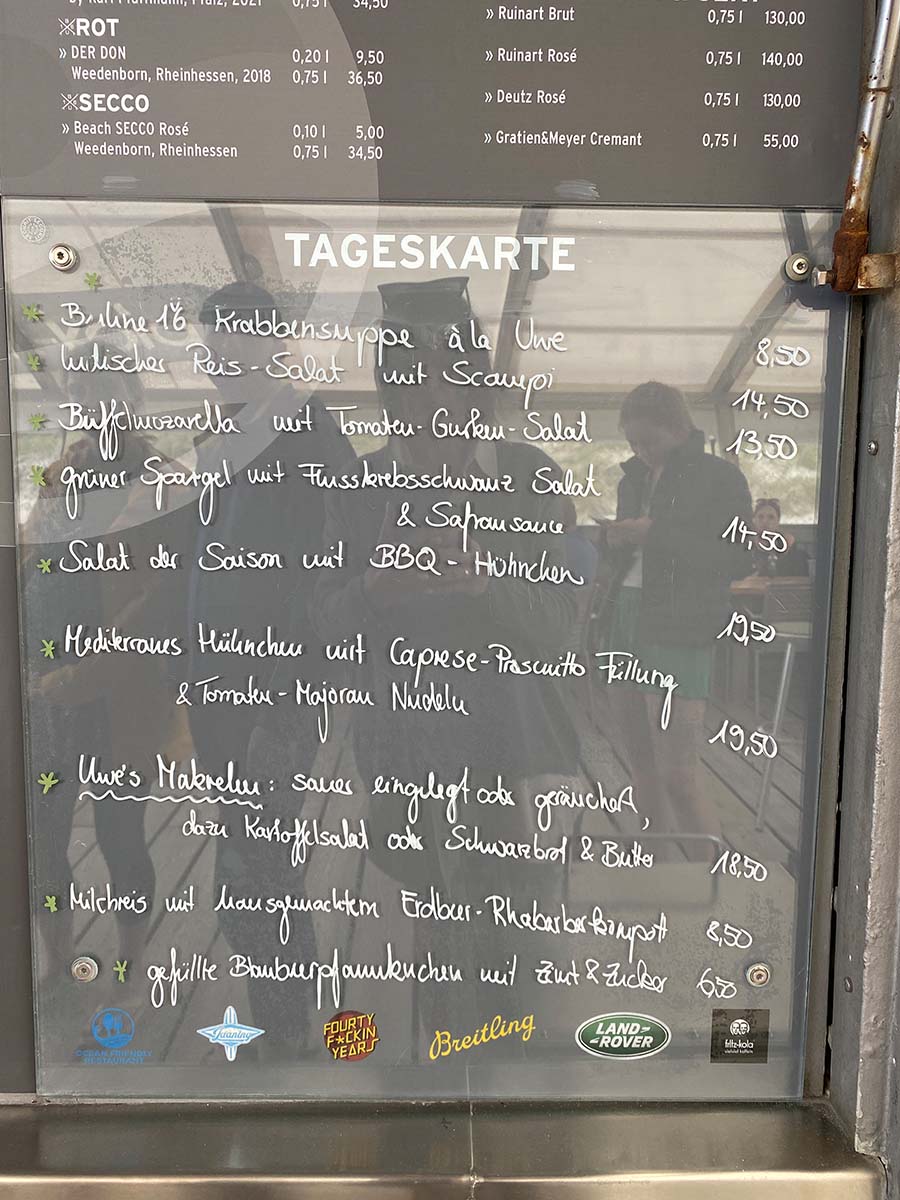 by Karl Pfaffmann, Pfalz, 2021 0,75 l 34,50
ROT
» DER DON 0,20 l 9,50
Weedenborn, Rheinhessen, 2018 0,75 l 36,50
SECCO
» Beach SECCO Rosé 0,10 l 5,00
Weedenborn, Rheinhessen 0,75 l 34,50
» Ruinart Brut 0,75 l 130,00
» Ruinart Rosé 0,75 l 140,00
» Deutz Rosé 0,75 l 130,00
» Gratien&Meyer Cremant 0,75 l 55,00
TAGESKARTE
Buhne 16 Krabbensuppe à la Uwe 8,50
Reis-Salat mit Scampi 14,50
Büffelmozarella mit Tomaten-Gurken-Salat 13,50
grüner Spargel mit Flusskrebsschwanz Salat
& Safransauce 14,50
Salat der Saison mit BBQ-Hühnchen 19,50
Mediterranes Hühnchen mit Caprese-Proscuitto Füllung
& Tomaten-Majoran Nudeln 19,50
Uwe's Makrelen: sauer eingelegt oder geräuchert,
dazu Kartoffelsalat oder Schwarzbrot & Butter 18,50
Milchreis mit hausgemachtem Erdbeer-Rhabarberkompott 8,50
gefüllte Blaubeerpfannkuchen mit Zimt & Zucker 6,50
OCEAN FRIENDLY
RESTAURANT
FOURTY
F*CKIN
YEARS
Breitling
LAND-
ROVER
fritz-kola
vielviel koffein